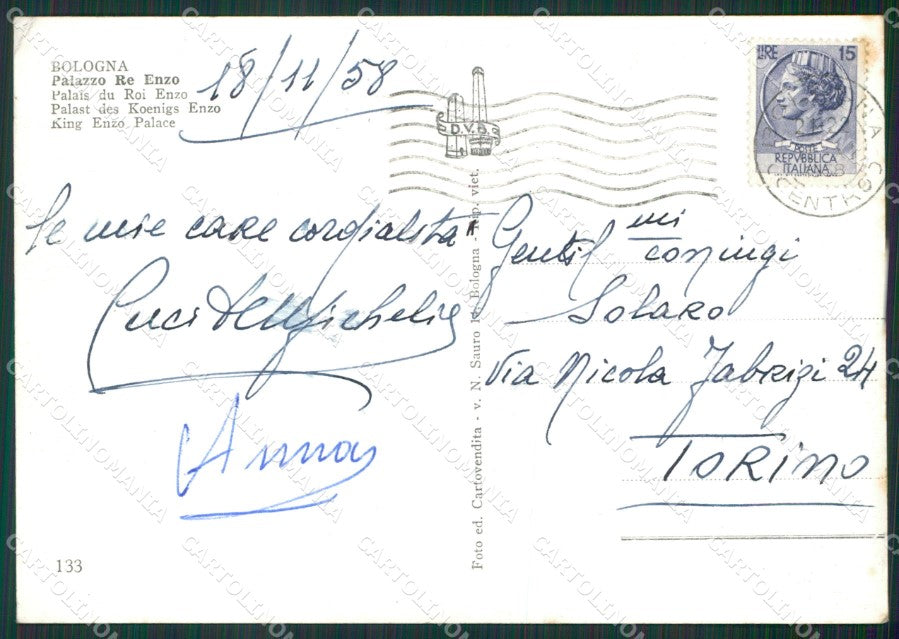 BOLOGNA
Palazzo Re Enzo
Palais du Roi Enzo
Palast des Koenigs Enzo
King Enzo Palace
18/11/58
D.V.B.
LIRE 15
POSTE
REPVBBLICA
ITALIANA
CENTRO
le mie care cordialità
Anna
133
Foto ed. Cartovendita - v. N. Sauro Bologna - Rip. viet.
Gentil mi coniugi
Solaro
Via Nicola Fabrizi 24
TORINO
CARTOLINOMANIA